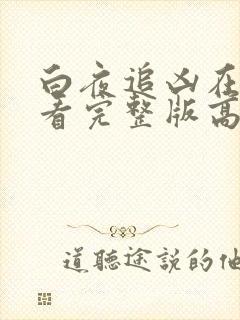 白夜追凶在
看完整版高
道聽途説的他